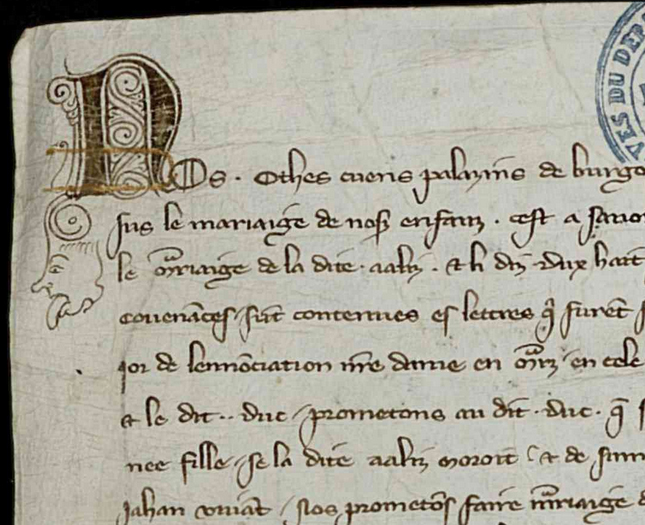 Nos . Othes cuens palazins de burgo
sus le mariaige de nos enfanz . cest a savoir
le mariaige de la dite . aaliz . & li diz dux hait
covenāces sūt contenues es lettres q̄ furēt s
jor de lennōciation nr̄e dame en marz en cele
& le dit .. duc prometons au dit . duc . q̄ s
nee fille se la dite aaliz moroit & de sum
Jahan vivāt nos prometōs faire mariaige d
VES DU DEPA